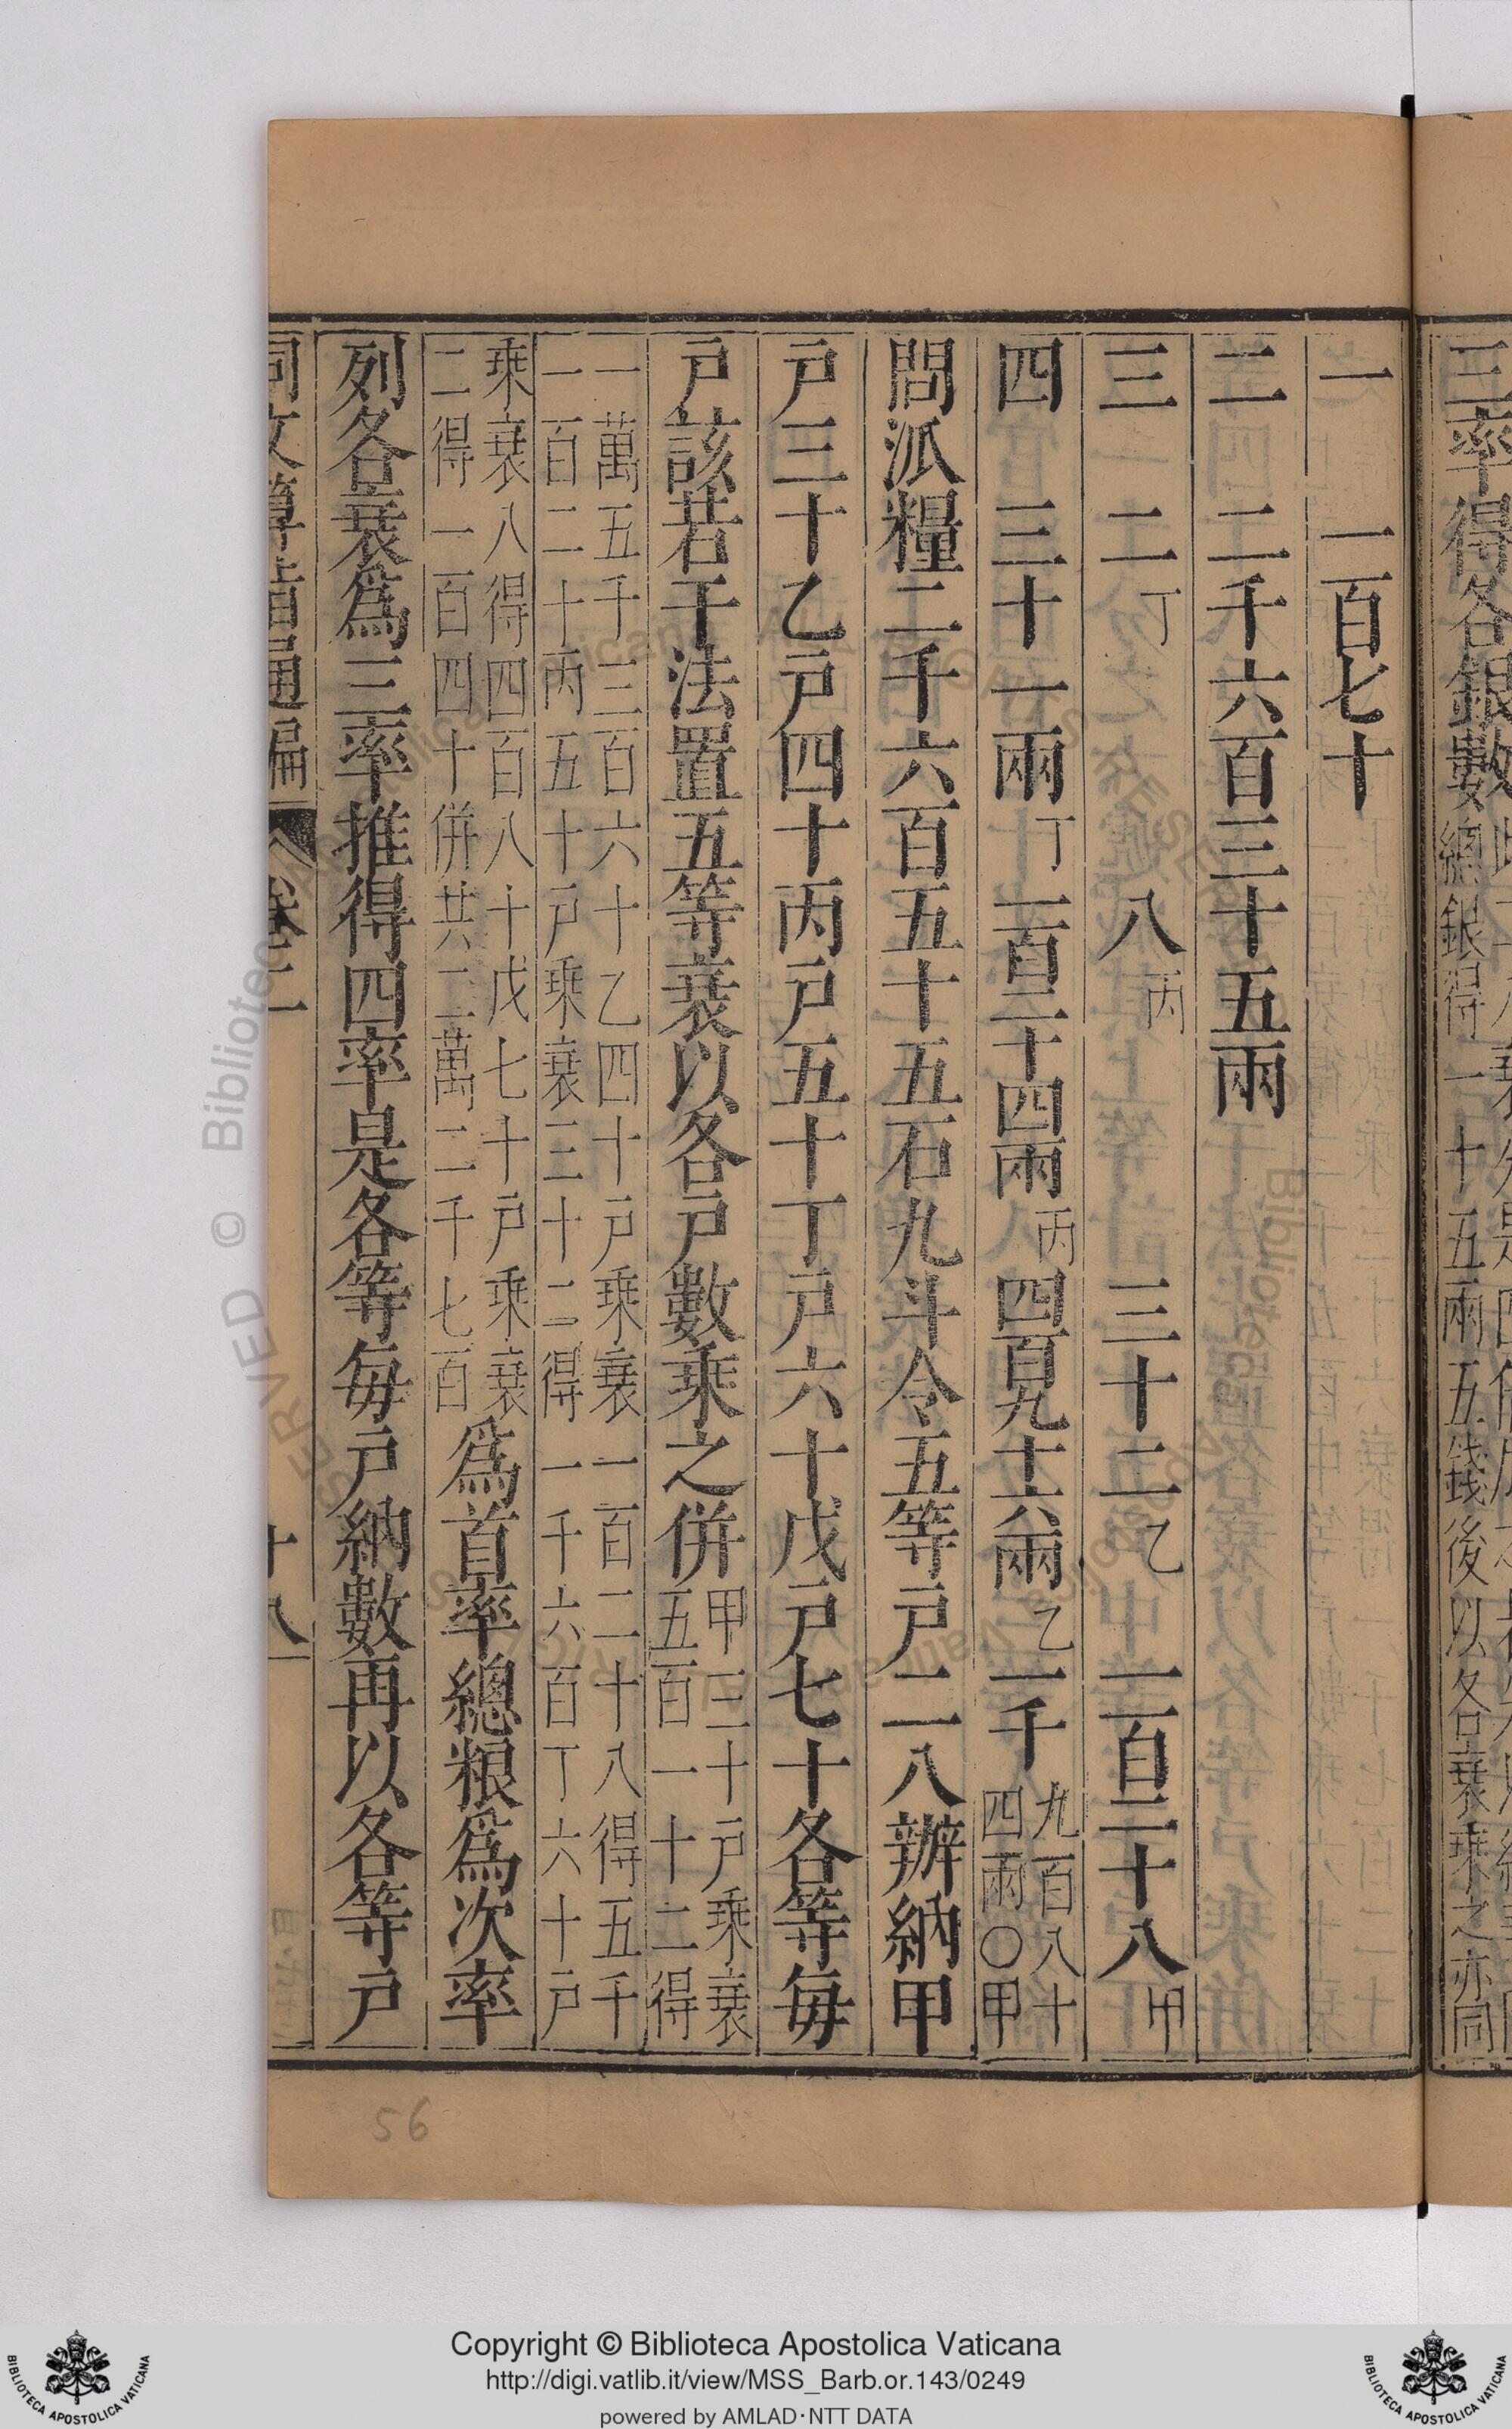 三率得各銀數
總銀得二十五兩五錢後以各衰乘之亦同
一　一百七十
二　二千六百三十五兩
三　二丁　八丙　三十二乙　一百二十八甲
四　三十一兩丁　一百二十四兩丙　四百九十六兩乙　一千九百八十四兩〇甲
問派糧二千六百五十五石九斗令五等戶二八辦納甲
戶三十乙戶四十丙戶五十丁戶六十戊戶七十各等每
戶該若干法置五等衰以各戶數乘之併甲三十戶乘衰五百一十二得
一萬五千三百六十乙四十戶乘衰一百二十八得五千
一百二十丙五十戶乘衰三十二得一千六百丁六十戶
乘衰八得四百八十戊七十戶乘衰
二得一百四十併共二萬二千七百爲首率總粮爲次率
列各衰爲三率推得四率是各等每戶納數再以各等戶
同文算指通編　卷二　十八
56
Copyright © Biblioteca Apostolica Vaticana
http://digi.vatlib.it/view/MSS_Barb.or.143/0249
powered by AMLAD·NTT DATA
BIBLIOTECA APOSTOLICA VATICANA
BIBLIOTECA APOSTOLICA VATICANA